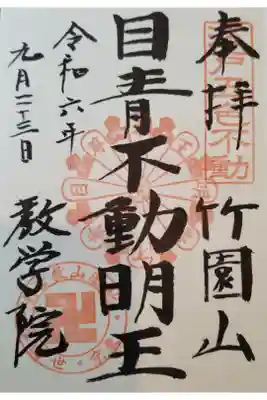 江戸五色不動
奉拝 竹園山
目青不動明王
令和六年
九月二十三日
教学院